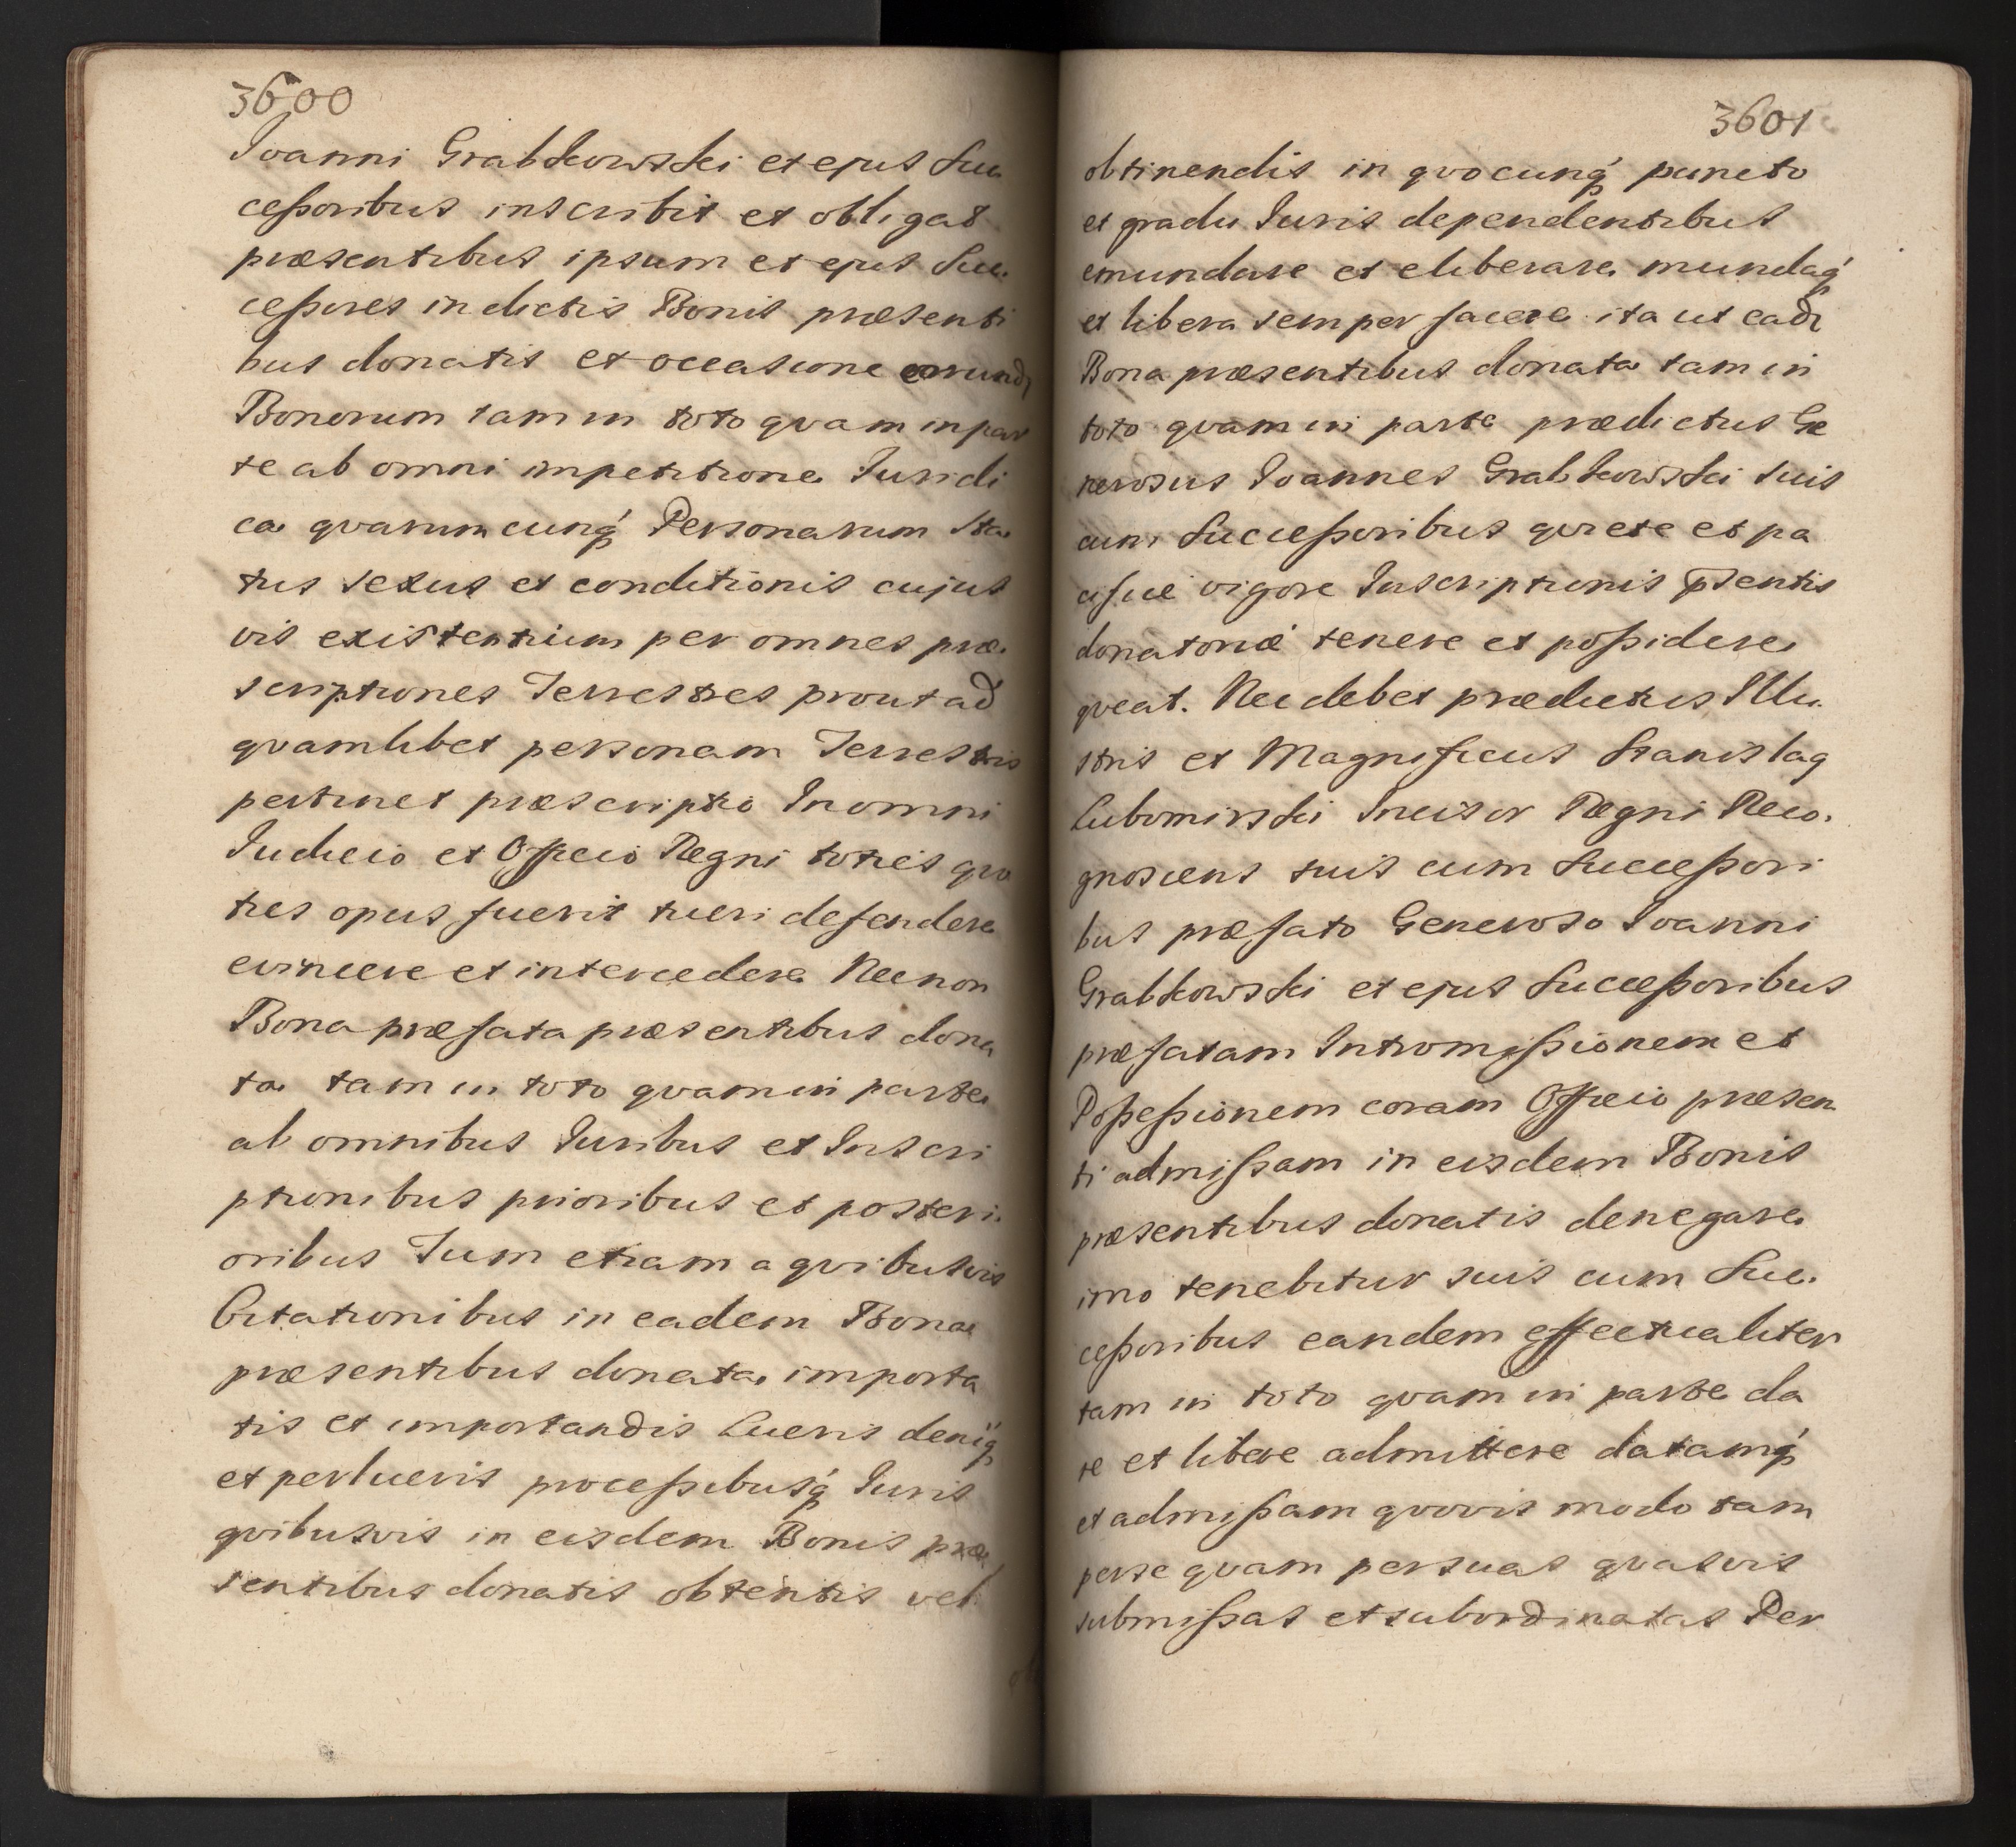 3600
Joanni Grabkowski et ejus Suc
ceßoribus inscribit et obligat
præsentibus ipsum et ejus Suc
ceßores in dictis Bonis præsenti
bus donatis et occasione eorund
Bonorum tam in toto qvam in par
te ab omni impetitione Juridi
ca qvarumcunq́ Personarum Sta
tus sexus et conditionis cujus
vis existentium per omnes præ
scriptiones Terrestres prout ad
qvamlibet personam Terrestris
pertinet præscriptio In omni
Judicio et Officio Regni toties qvo
ties opus fuerit tueri defendere
evincere et intercedere Necnon
Bona præfata præsentibus dona
ta tam in toto qvam in parte
ab omnibus Juribus et Inscri
ptionibus prioribus et posteri
oribus Tum etiam a qvibusvis
Citationibus in eadem Bona
præsentibus donata importa
tis et importandis Lucris deniq́
et perlucris proceßibusq́ Juris
qvibusvis in eisdem Bonis præ
sentibus donatis obtentis vel
3601
obtinendis in qvocunq́ puncto
et gradu Juris dependentibus
emundare et eliberare mundaq́
et libera semper facere ita ut ead
Bona præsentibus donata tam in
toto qvam in parte prædictus Ge
nerosus Joannes Grabkowski suis
cum Succeßoribus qviete et pa
cifice vigore Inscriptionis p̄sentis
donatoriæ tenere et poßidere
qveat. Nec debet prædictus Illu
stris et Magnificus Stanislaq
Lubomirski Incisor Regni Reco
gnoscens suis cum Succeßori
bus præfato Generoso Joanni
Grabkowski et ejus Succeßoribus
præfatam Intromißionem et
Poßeßionem coram Officio præsen
ti admißam in eisdem Bonis
præsentibus donatis denegare
imo tenebitur suis cum Suc
ceßoribus eandem effectualiter
tam in toto qvam in parte da
re et libere admittere datamq́
et admißam qvovis modo tam
per se qvam per suas qvasvis
submißas et subordinatas Per